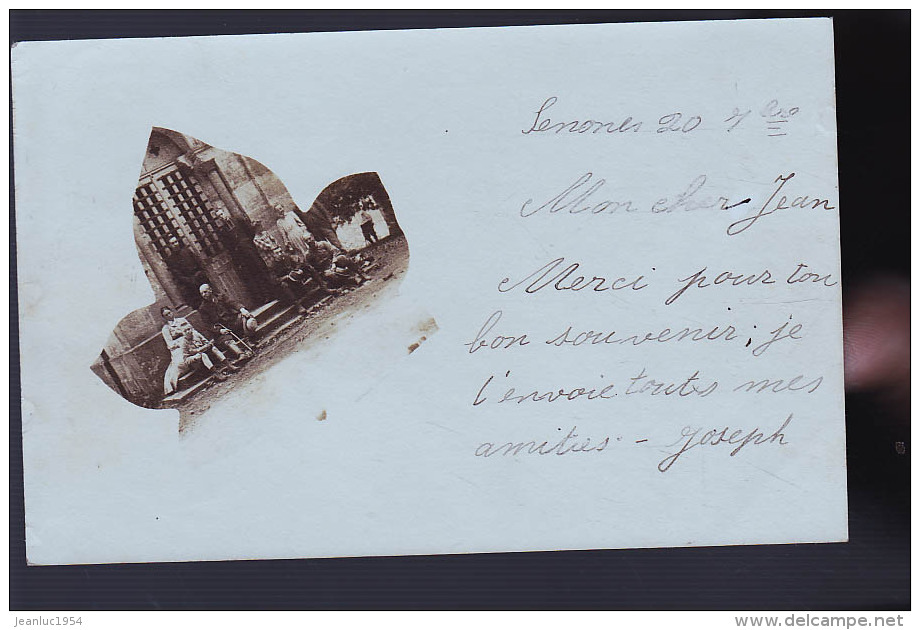 Senones 20 7bre
Mon cher Jean
Merci pour ton
bon souvenir; je
l'envoie toutes mes
amitiés - Joseph
jeanluc1954
www.delcampe.net